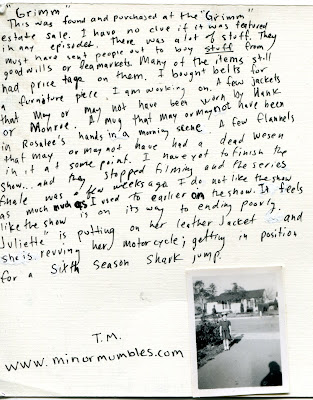 "Grimm."
This was found and purchased at the "Grimm"
estate sale. I have no clue if it was featured
in any episodes. There was a lot of stuff. They
must have sent people out to buy stuff from
goodwills or flea markets. Many of the items still
had price tags on them. I bought belts for
a furniture piece I am working on. A few jackets
that may or may not have been worn by Hank
or Monroe. A mug that may or may not have been
in Rosalee's hands in a morning scene. A few flannels
that may or may not have had a dead wesen
in it at some point. I have yet to finish the
show... and they stopped filming and the series
finale was a few weeks ago. I do not like the show
as much as I used to earlier on the show. It feels
like the show is on its way to ending poorly.
Juliette is putting on her leather jacket and
she is revving her motorcycle; getting in position
for a sixth season shark jump.
T.M.
www.minormumbles.com